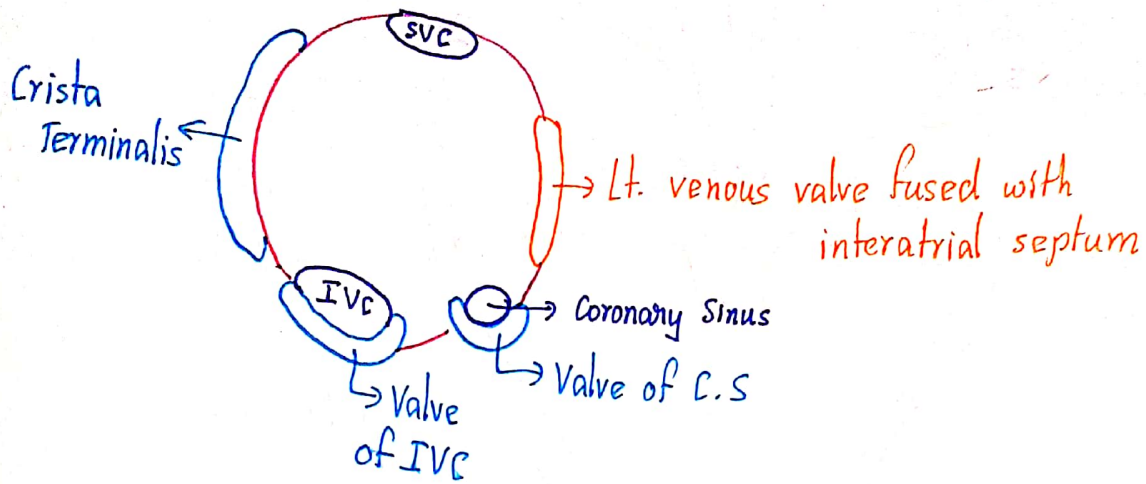 SVC
Crista
Terminalis
Lt. venous valve fused with
interatrial septum
IVC
Coronary Sinus
Valve of C.S
Valve
of IVC